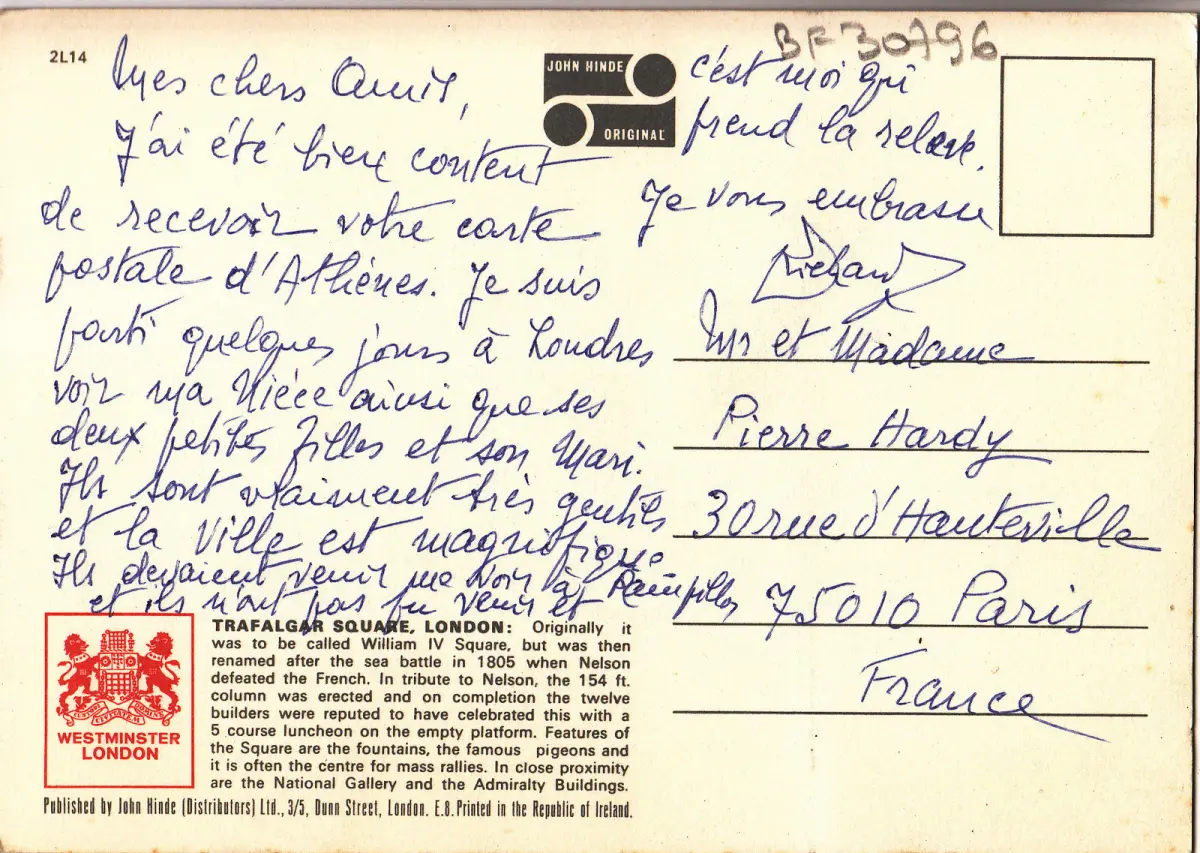 2L14
BF30796
Mes chers Amis,
J'ai été bien content
de recevoir votre carte
postale d'Athénes. Je suis
parti quelques jours à Londres
voir ma Niéce ainsi que ses
deux petites filles et son Mari.
Ils sont vraiment très gentils
et la Ville est magnifique
Ils devaient venir me voir à
et ils n'ont pas pu venir et
c'est moi qui
prend la releve.
Je vous embrasse
Richard
JOHN HINDE
ORIGINAL
Mr et Madame
Pierre Hardy
30 rue d'Hauteville
75010 Paris
France
WESTMINSTER
LONDON
TRAFALGAR SQUARE, LONDON: Originally it
was to be called William IV Square, but was then
renamed after the sea battle in 1805 when Nelson
defeated the French. In tribute to Nelson, the 154 ft.
column was erected and on completion the twelve
builders were reputed to have celebrated this with a
5 course luncheon on the empty platform. Features of
the Square are the fountains, the famous pigeons and
it is often the centre for mass rallies. In close proximity
are the National Gallery and the Admiralty Buildings.
Published by John Hinde (Distributors) Ltd., 3/5, Dunn Street, London. E.8. Printed in the Republic of Ireland.